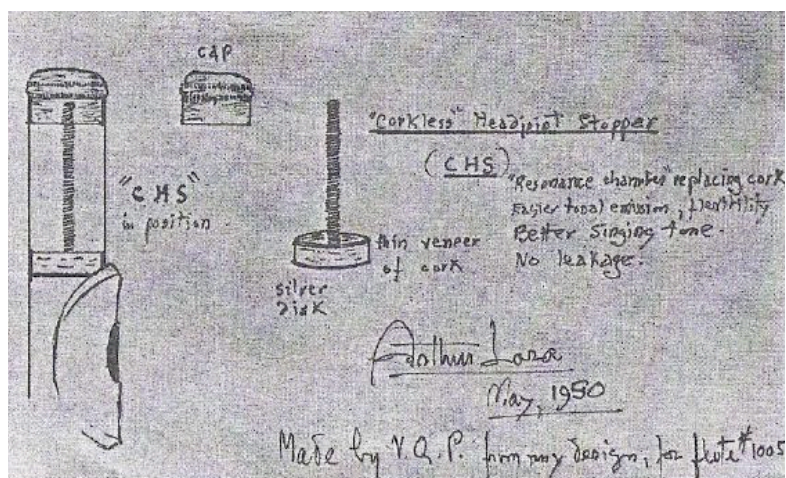 CAP
"Corkless" Headjoint Stopper
(CHS)
"Resonance chamber" replacing cork
Easier tonal emission, flexibility
Better singing tone.
No leakage.
"CHS"
in position.
thin veneer
of cork
silver
Disk
Arthur Lora
May, 1950
Made by V.Q.P. from my design, for flute #1005